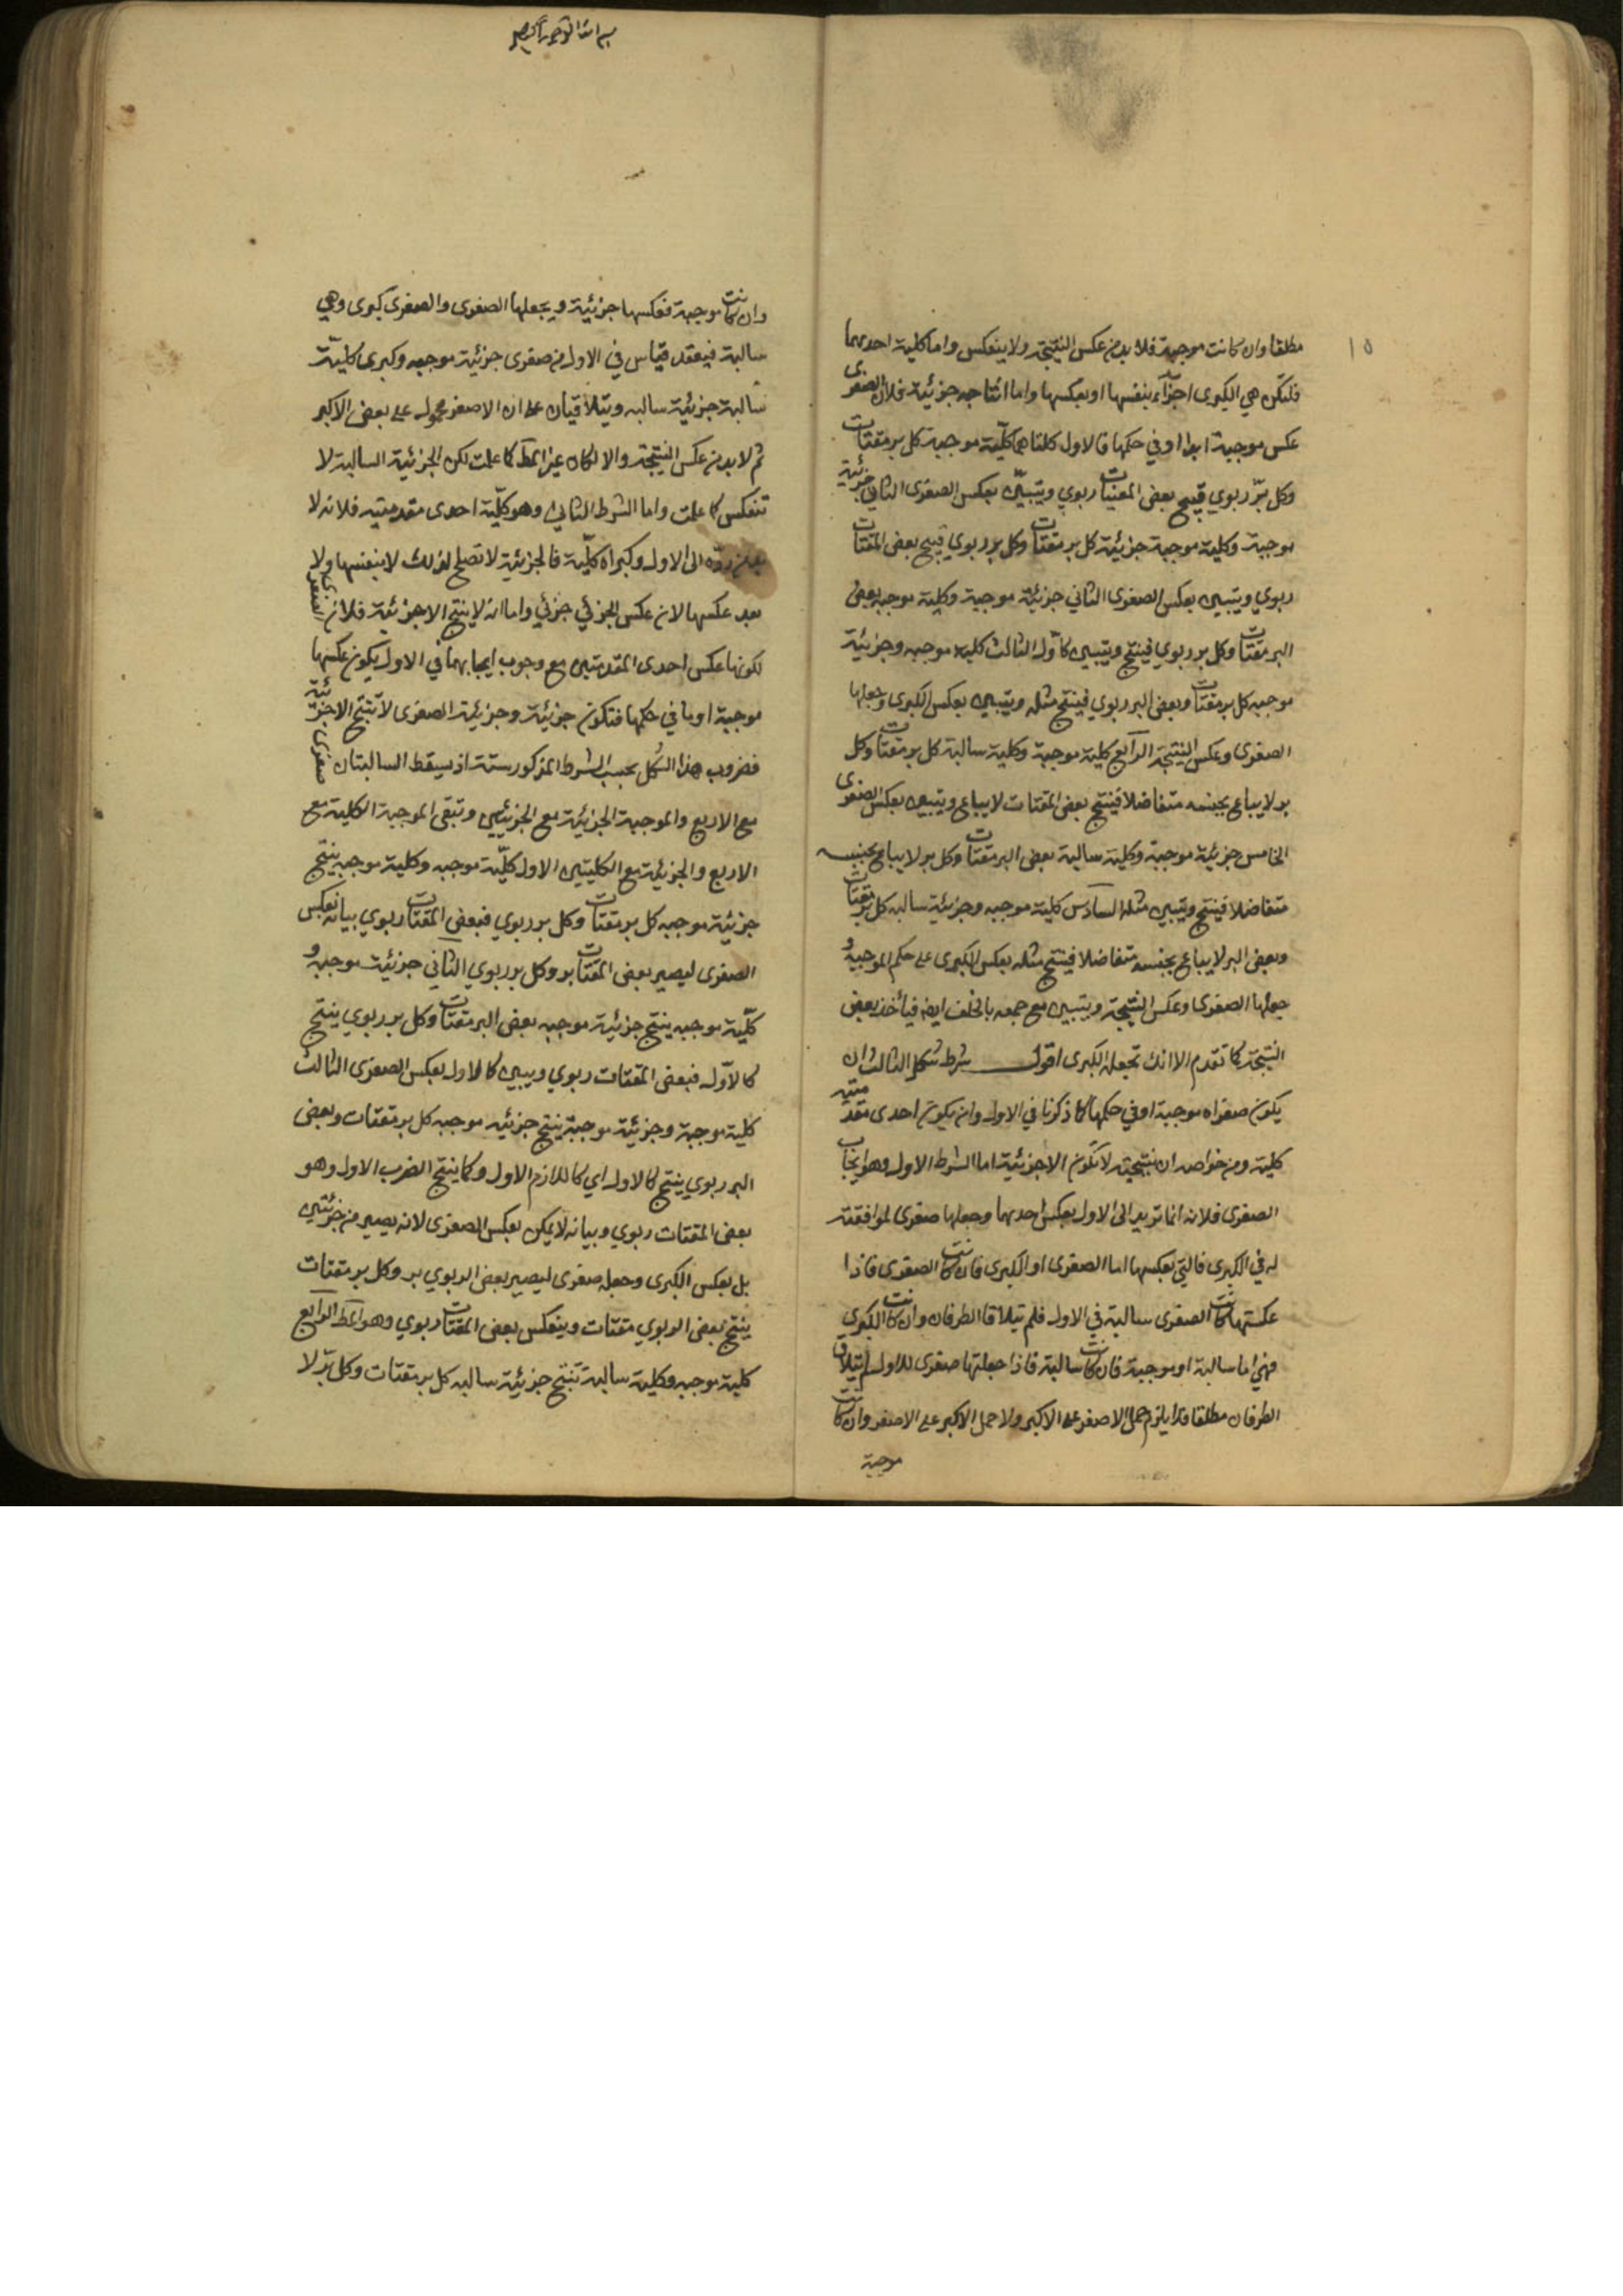 ١٥
مطلقا وان كانت موجبة فلا بد من عكس النتيجة ولا ينعكس واما كلية احديهما
فلتكن هي الكبرى اجزاء بنفسها او بعكسها واما انتاجه جزئية فلان الصغرى
عكس موجبة ابدا او في حكمها فالاول كلتاهما كلية موجبة كل بر مقتات
وكل بر ربوي فينتج بعض المقتات ربوي ويتبين بعكس الصغرى الثاني جزئية
موجبة وكلية موجبة جزئية كل بر مقتات وكل بر ربوي فينتج بعض المقتات
ربوي ويتبين بعكس الصغرى الثاني جزئية موجبة وكلية موجبه بعض
البر مقتات وكل بر ربوي فينتج ويتبين كالاول الثالث كلية موجبه وجزئية
موجبه كل بر مقتات وبعض البر ربوي فينتج مثله ويتبين بعكس الكبرى وجعلها
الصغرى وعكس النتيجة الرابع كلية موجبة وكلية سالبة كل بر مقتات وكل
بر لا يباع بجنسه متفاضلا فينتج بعض المقتات لا يباع ويتبين بعكس الصغرى
الخامس جزئية موجبة وكلية سالبة بعض البر مقتات وكل بر لا يباع بجنسه
متفاضلا فينتج ويتبين مثله السادس كلية موجبه وجزئية سالبه كل بر مقتات
وبعض البر لا يباع بجنسه متفاضلا فينتج مثله بعكس الكبرى على حكم الموجبة و
جعلها الصغرى وعكس النتيجة ويتبين مع جمعه بالخلف ايضا فيأخذ بعض
النتيجة كما تقدم الا انك تجعله الكبرى اقول شرط شكل الثالث ان
يكون صغراه موجبة او في حكمها كما ذكرنا في الاول وان يكون احدى مقدمتيه
كلية ومن خواصه ان نتيجته لا تكون الا جزئية اما الشرط الاول وهو ايجاب
الصغرى فلانه انما تريد الى الاول بعكس احديهما وجعلها صغرى لموافقته
له في الكبرى فالتي بعكسها اما الصغرى او الكبرى فان كانت الصغرى فاذا
عكستها كانت الصغرى سالبة في الاول فلم يتلاقا الطرفان وان كانت الكبرى
فهي اما سالبة او موجبة فان كانت سالبة فاذا جعلتها صغرى للاول لم يتلاق
الطرفان مطلقا فلا يلزم حمل الاصغر على الاكبر ولا حمل الاكبر على الاصغر وان كانت
موجبة
بسم الله الرحمن الرحيم
وان كانت موجبة فعكسها جزئية ويجعلها الصغرى والصغرى كبرى وهي
سالبة فينعقد قياس في الاول من صغرى جزئية موجبه وكبرى كلية
سالبة جزئية سالبه ويتلاقيان على ان الاصغر محمول على بعض الاكبر
ثم لا بد من عكس النتيجة والا لكان غير المط كما علمت لكن الجزئية السالبة لا
تنعكس كما علمت واما الشرط الثاني وهو كلية احدى مقدمتيه فلانه لا
بد من رده الى الاول وكبراه كلية فالجزئية لا تصلح لذلك لا بنفسها ولا
بعد عكسها لان عكس الجزئي جزئي واما انه لا ينتج الا جزئية فلان الصغرى
لكونها عكس احدى المقدمتين مع وجوب ايجابهما في الاول يكون عكسها
موجبة او ما في حكمها فتكون جزئية وجزئية الصغرى لا تنتج الا جزئية
فضروب هذا الشكل بحسب الشرط المذكور ستة اذ يسقط السالبتان صغرى
مع الاربع والموجبة الجزئية مع الجزئيتين وتبقى الموجبة الكلية مع
الاربع والجزئية مع الكليتين الاول كلية موجبه وكلية موجبه ينتج
جزئية موجبه كل بر مقتات وكل بر ربوي فبعض المقتات ربوي بيانه بعكس
الصغرى ليصير بعض المقتات بر وكل بر ربوي الثاني جزئية موجبه و
كلية موجبه ينتج جزئية موجبه بعض البر مقتات وكل بر ربوي ينتج
كالاول فبعض المقتات ربوي ويبين كالاول بعكس الصغرى الثالث
كلية موجبة وجزئية موجبة ينتج جزئيه موجبه كل بر مقتات وبعض
البر ربوي ينتج كالاول اي كاللازم الاول وكما ينتج الضرب الاول وهو
بعض المقتات ربوي وبيانه لا يمكن بعكس الصغرى لانه يصير من جزئيتين
بل بعكس الكبرى وجعله صغرى ليصير بعض الربوي بر وكل بر مقتات
ينتج بعض الربوي مقتات وينعكس بعض المقتات ربوي وهو المط الرابع
كلية موجبه وكلية سالبة تنتج جزئية سالبه كل بر مقتات وكل بر لا